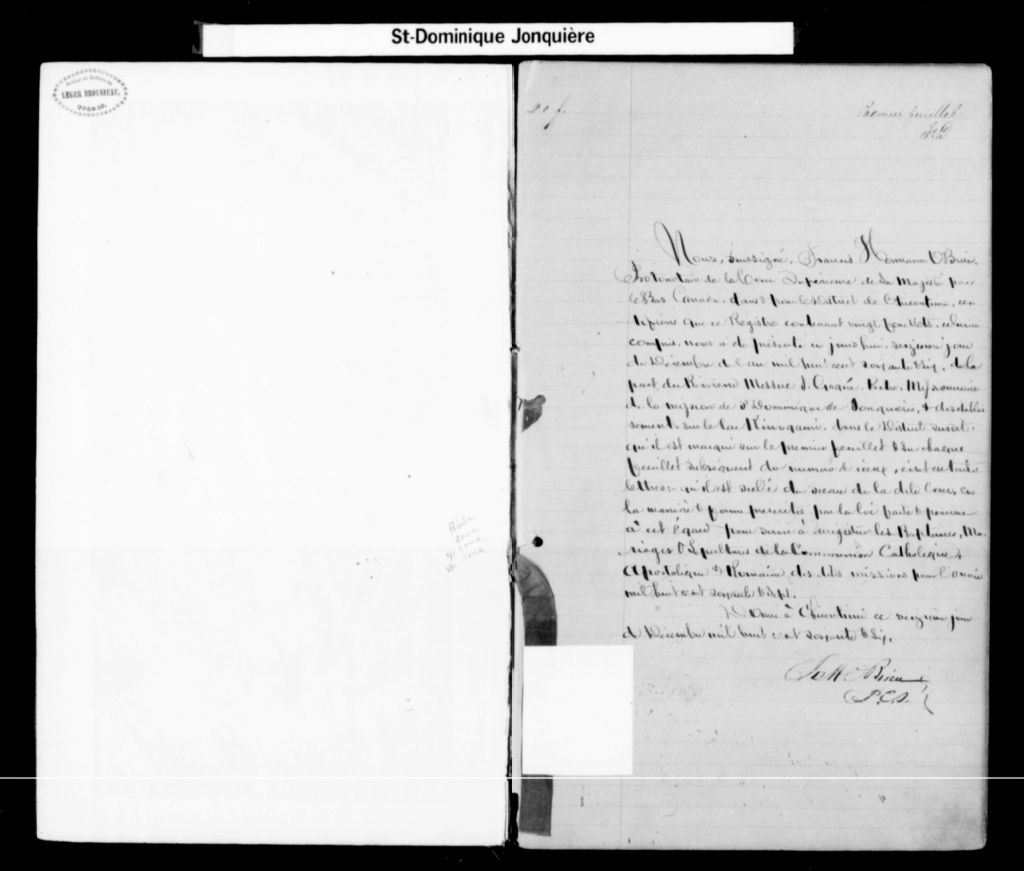 St-Dominique Jonquière
LEGER BROUSSEAU,
QUEBEC.
20 f.
Premier feuillet
Nous, soussigné, Francis Hermann OBrien,
Protonotaire de la Cour Supérieure de Sa Majesté pour
le Bas Canada, dans & pour le District de Chicoutimi, cer
tifions que ce Registre contenant vingt feuillets, celui-ci
compris, nous a été présenté ce jourd'hui, seizième jour
de Décembre de l'an mil huit cent soixante & six, de la
part du Révérend Messire J. Gagné, Ptre, Missionnaire
de la mission de St Dominique de Jonquière, & des établis
sements sur le lac Kinogami, dans le District susdit;
qu'il est marqué sur le premier feuillet & sur chaque
feuillet subséquent du numéro d'iceux, écrit en toutes
lettres; qu'il est scellé du sceau de la dite Cour, en
la manière & forme prescrites par la loi faite & pourvue
à cet égard pour servir à enregistrer les Baptêmes, Ma
riages & Sépultures de la Communion Catholique,
Apostolique & Romaine des dites missions pour l'année
mil huit cent soixante & sept.
Donné à Chicoutimi ce seizième jour
de Décembre mil huit cent soixante & six.
OBrien
P.C.S.